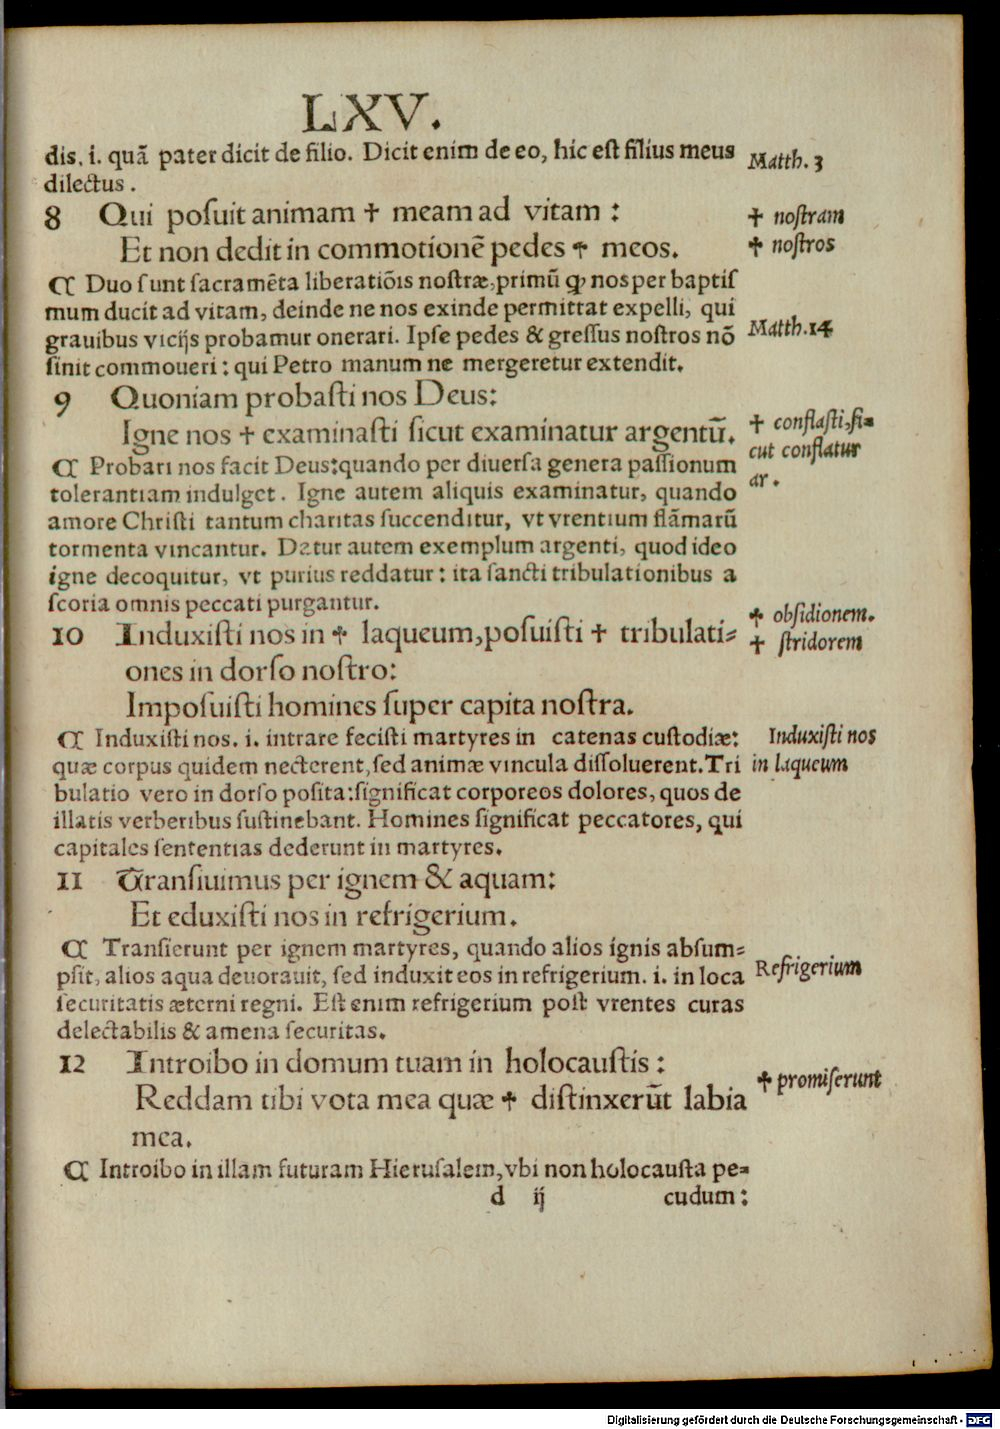 LXV.
dis. i. quā pater dicit de filio. Dicit enim de eo, hic eſt filius meus
Matth. 3
dilectus.
8 Qui poſuit animam ✝ meam ad vitam :
✝ noſtram
Et non dedit in commotionē pedes ✝ meos.
✝ noſtros
¶ Duo ſunt ſacramēta liberatiōis noſtræ, primū ꝙ nos per baptiſ
mum ducit ad vitam, deinde ne nos exinde permittat expelli, qui
grauibus vicijs probamur onerari. Ipſe pedes & greſſus noſtros nō
Matth. 14
ſinit commoueri : qui Petro manum ne mergeretur extendit.
9 Quoniam probaſti nos Deus:
Igne nos ✝ examinaſti ſicut examinatur argentū.
✝ conflaſti, ſi=
cut conflatur
ar.
¶ Probari nos facit Deus: quando per diuerſa genera paſſionum
tolerantiam indulget. Igne autem aliquis examinatur, quando
amore Chriſti tantum charitas ſuccenditur, vt vrentium flāmarū
tormenta vincantur. Datur autem exemplum argenti, quod ideo
igne decoquitur, vt purius reddatur : ita ſancti tribulationibus a
ſcoria omnis peccati purgantur.
10 Induxiſti nos in ✝ laqueum, poſuiſti ✝ tribulati=
✝ obſidionem.
✝ ſtridorem
ones in dorſo noſtro:
Impoſuiſti homines ſuper capita noſtra.
¶ Induxiſti nos. i. intrare feciſti martyres in catenas cuſtodiæ:
Induxiſti nos
quæ corpus quidem necterent, ſed animæ vincula diſſoluerent. Tri
in laqueum
bulatio vero in dorſo poſita: ſignificat corporeos dolores, quos de
illatis verberibus ſuſtinebant. Homines ſignificat peccatores, qui
capitales ſententias dederunt in martyres.
11 Tranſiuimus per ignem & aquam:
Et eduxiſti nos in refrigerium.
¶ Tranſierunt per ignem martyres, quando alios ignis abſum=
pſit, alios aqua deuorauit, ſed induxit eos in refrigerium. i. in loca
Refrigerium
ſecuritatis æterni regni. Eſt enim refrigerium poſt vrentes curas
delectabilis & amena ſecuritas.
12 Introibo in domum tuam in holocauſtis :
Reddam tibi vota mea quæ ✝ diſtinxerūt labia
✝ promiſerunt
mea.
¶ Introibo in illam futuram Hieruſalem, vbi non holocauſta pe=
d ij cudum :
Digitalisierung gefördert durch die Deutsche Forschungsgemeinschaft - DFG